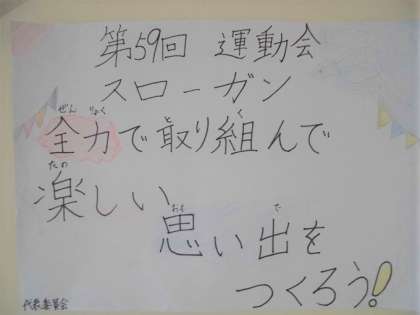 第59回 運動会
スローガン
ぜん りょく と く
全力で取り組んで
たの
楽しい
おも で
思い出を
つくろう!
代表委員会